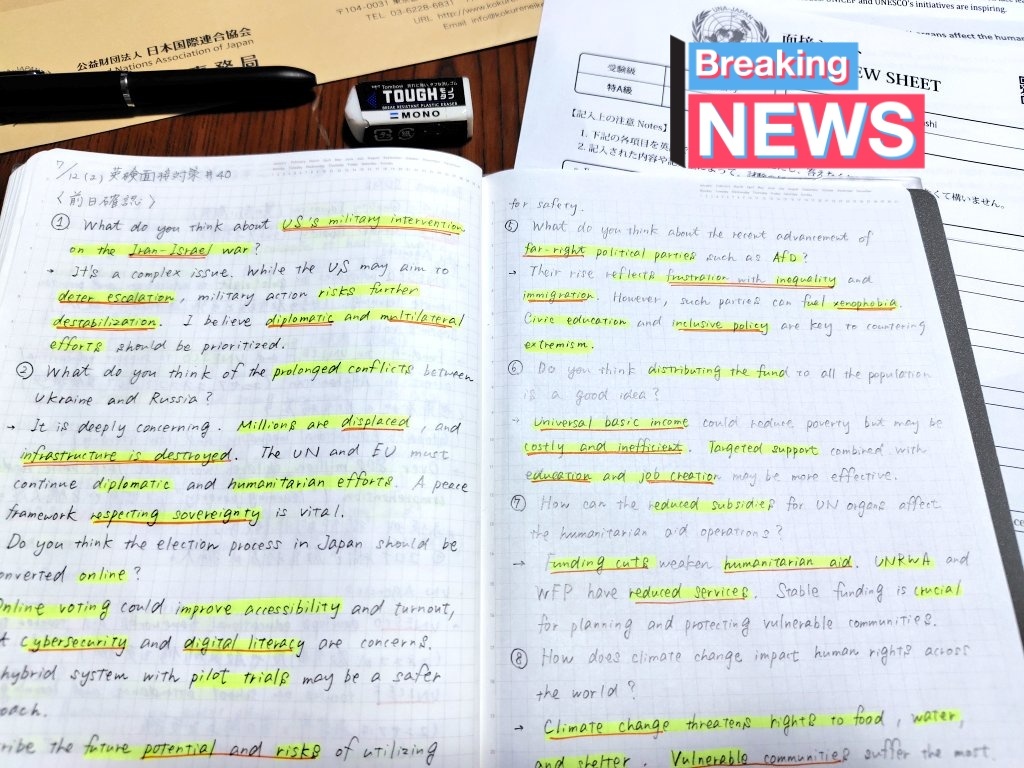 〒104-0031
TEL 03-6228-6831
URL http://www.kokuren
Email info@kokuren
公益財団法人 日本国際連合協会
Nations Association of Japan
事務局
Tombow
TOUGH
BREAK RESISTANT PLASTIC ERASER
MONO
UNICEF and UNESCO's initiatives are inspiring.
organs affect the human
UNA-JAPAN
EW SHEET
受験級
特A級
【記入上の注意 Notes】
1. 下記の各項目を英
2. 記入された内容や記
くて構いません。
Breaking
NEWS
7/12(土) 英検面接対策 #40
〈前日確認〉
① What do you think about US's military intervention
on the Iran-Israel war?
→ It's a complex issue. While the US may aim to
deter escalation, military action risks further
destabilization. I believe diplomatic and multilateral
efforts should be prioritized.
② What do you think of the prolonged conflicts between
Ukraine and Russia?
→ It is deeply concerning. Millions are displaced, and
infrastructure is destroyed. The UN and EU must
continue diplomatic and humanitarian efforts. A peace
framework respecting sovereignty is vital.
Do you think the election process in Japan should be
onverted online?
Online voting could improve accessibility and turnout,
t cybersecurity and digital literacy are concerns.
hybrid system with pilot trials may be a safer
oach.
ribe the future potential and risks of utilizing
for safety.
⑤ What do you think about the recent advancement of
far-right political parties such as AfD?
→ Their rise reflects frustration with inequality and
immigration. However, such parties can fuel xenophobia.
Civic education and inclusive policy are key to countering
extremism.
⑥ Do you think distributing the fund to all the population
is a good idea?
→ Universal basic income could reduce poverty but may be
costly and inefficient. Targeted support combined with
education and job creation may be more effective.
⑦ How can the reduced subsidies for UN organs affect
the humanitarian aid operations?
→ Funding cuts weaken humanitarian aid. UNRWA and
WFP have reduced services. Stable funding is crucial
for planning and protecting vulnerable communities.
⑧ How does climate change impact human rights across
the world?
→ Climate change threatens rights to food, water,
and shelter. Vulnerable communities suffer the most.